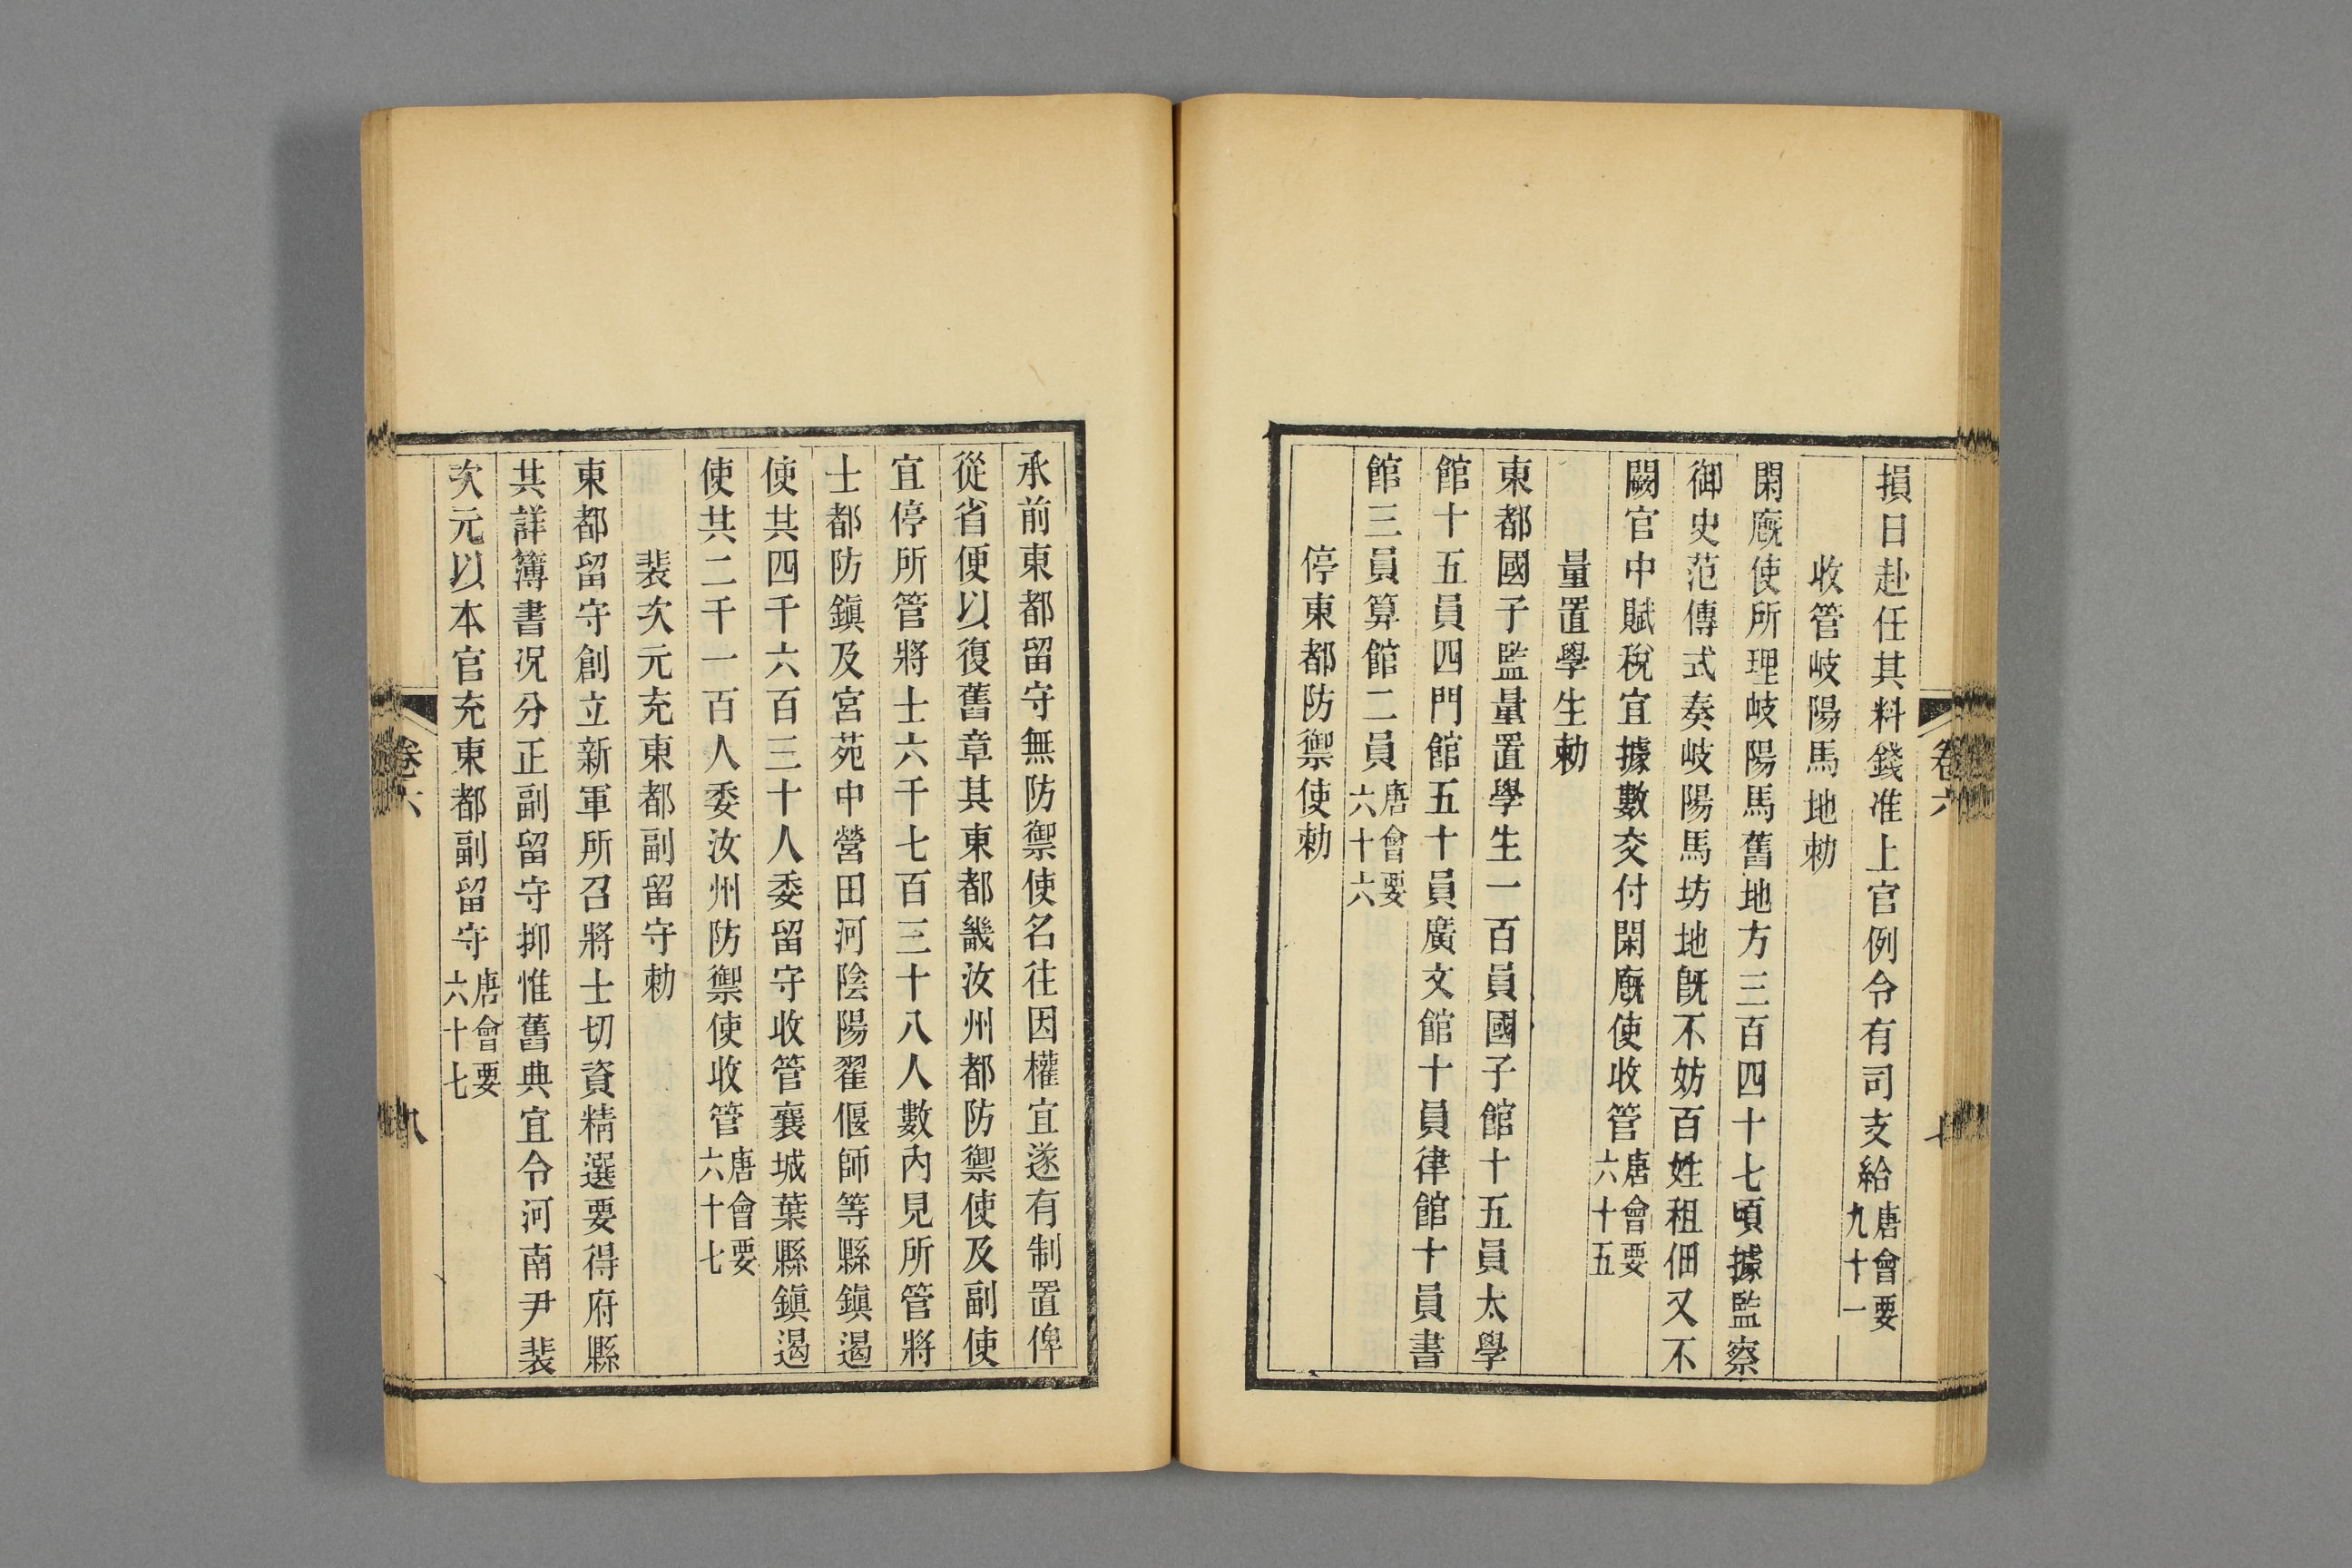 損日赴任其料錢准上官例令有司支給唐會要九十一
收管岐陽馬地勅
閑廄使所理岐陽馬舊地方三百四十七頃據監察
御史范傳式奏岐陽馬坊地旣不妨百姓租佃又不
闕官中賦稅宜據數交付閑廄使收管唐會要六十五
量置學生勅
東都國子監量置學生一百員國子館十五員太學
館十五員四門館五十員廣文館十員律館十員書
館三員算館二員唐會要六十六
停東都防禦使勅
承前東都留守無防禦使名往因權宜遂有制置俾
從省便以復舊章其東都畿汝州都防禦使及副使
宜停所管將士六千七百三十八人數內見所管將
士都防鎭及宮苑中營田河陰陽翟偃師等縣鎭遏
使共四千六百三十人委留守收管襄城葉縣鎭遏
使共二千一百人委汝州防禦使收管唐會要六十七
裴次元充東都副留守勅
東都留守創立新軍所召將士切資精選要得府縣
共詳簿書況分正副留守抑惟舊典宜令河南尹裴
次元以本官充東都副留守唐會要六十七
卷六